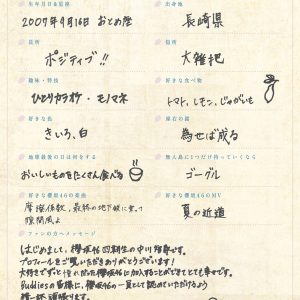 生年月日&星座
2007年9月16日 おとめ座
出身地
長崎県
長所
ポジティブ!!
短所
大雑把
趣味・特技
ひとりカラオケ・モノマネ
好きな食べ物
トマト、レモン、じゃがいも
好きな色
きいろ、白
座右の銘
為せば成る
地球最後の日は何をする
おいしいものをたくさん食べる
無人島に1つだけ持っていくなら
ゴーグル
好きな櫻坂46の楽曲
摩擦係数、最終の地下鉄に乗って
隙間風よ
好きな櫻坂46のMV
夏の近道
ファンの方へメッセージ
はじめまして、櫻坂46四期生の中川です。
プロフィールをご覧いただきありがとうございます!
大好きでずっと憧れだった櫻坂46に加入することができてとても幸せです。
Buddiesの皆様に、櫻坂46の一員として認めていただけるよう
精一杯頑張ります。